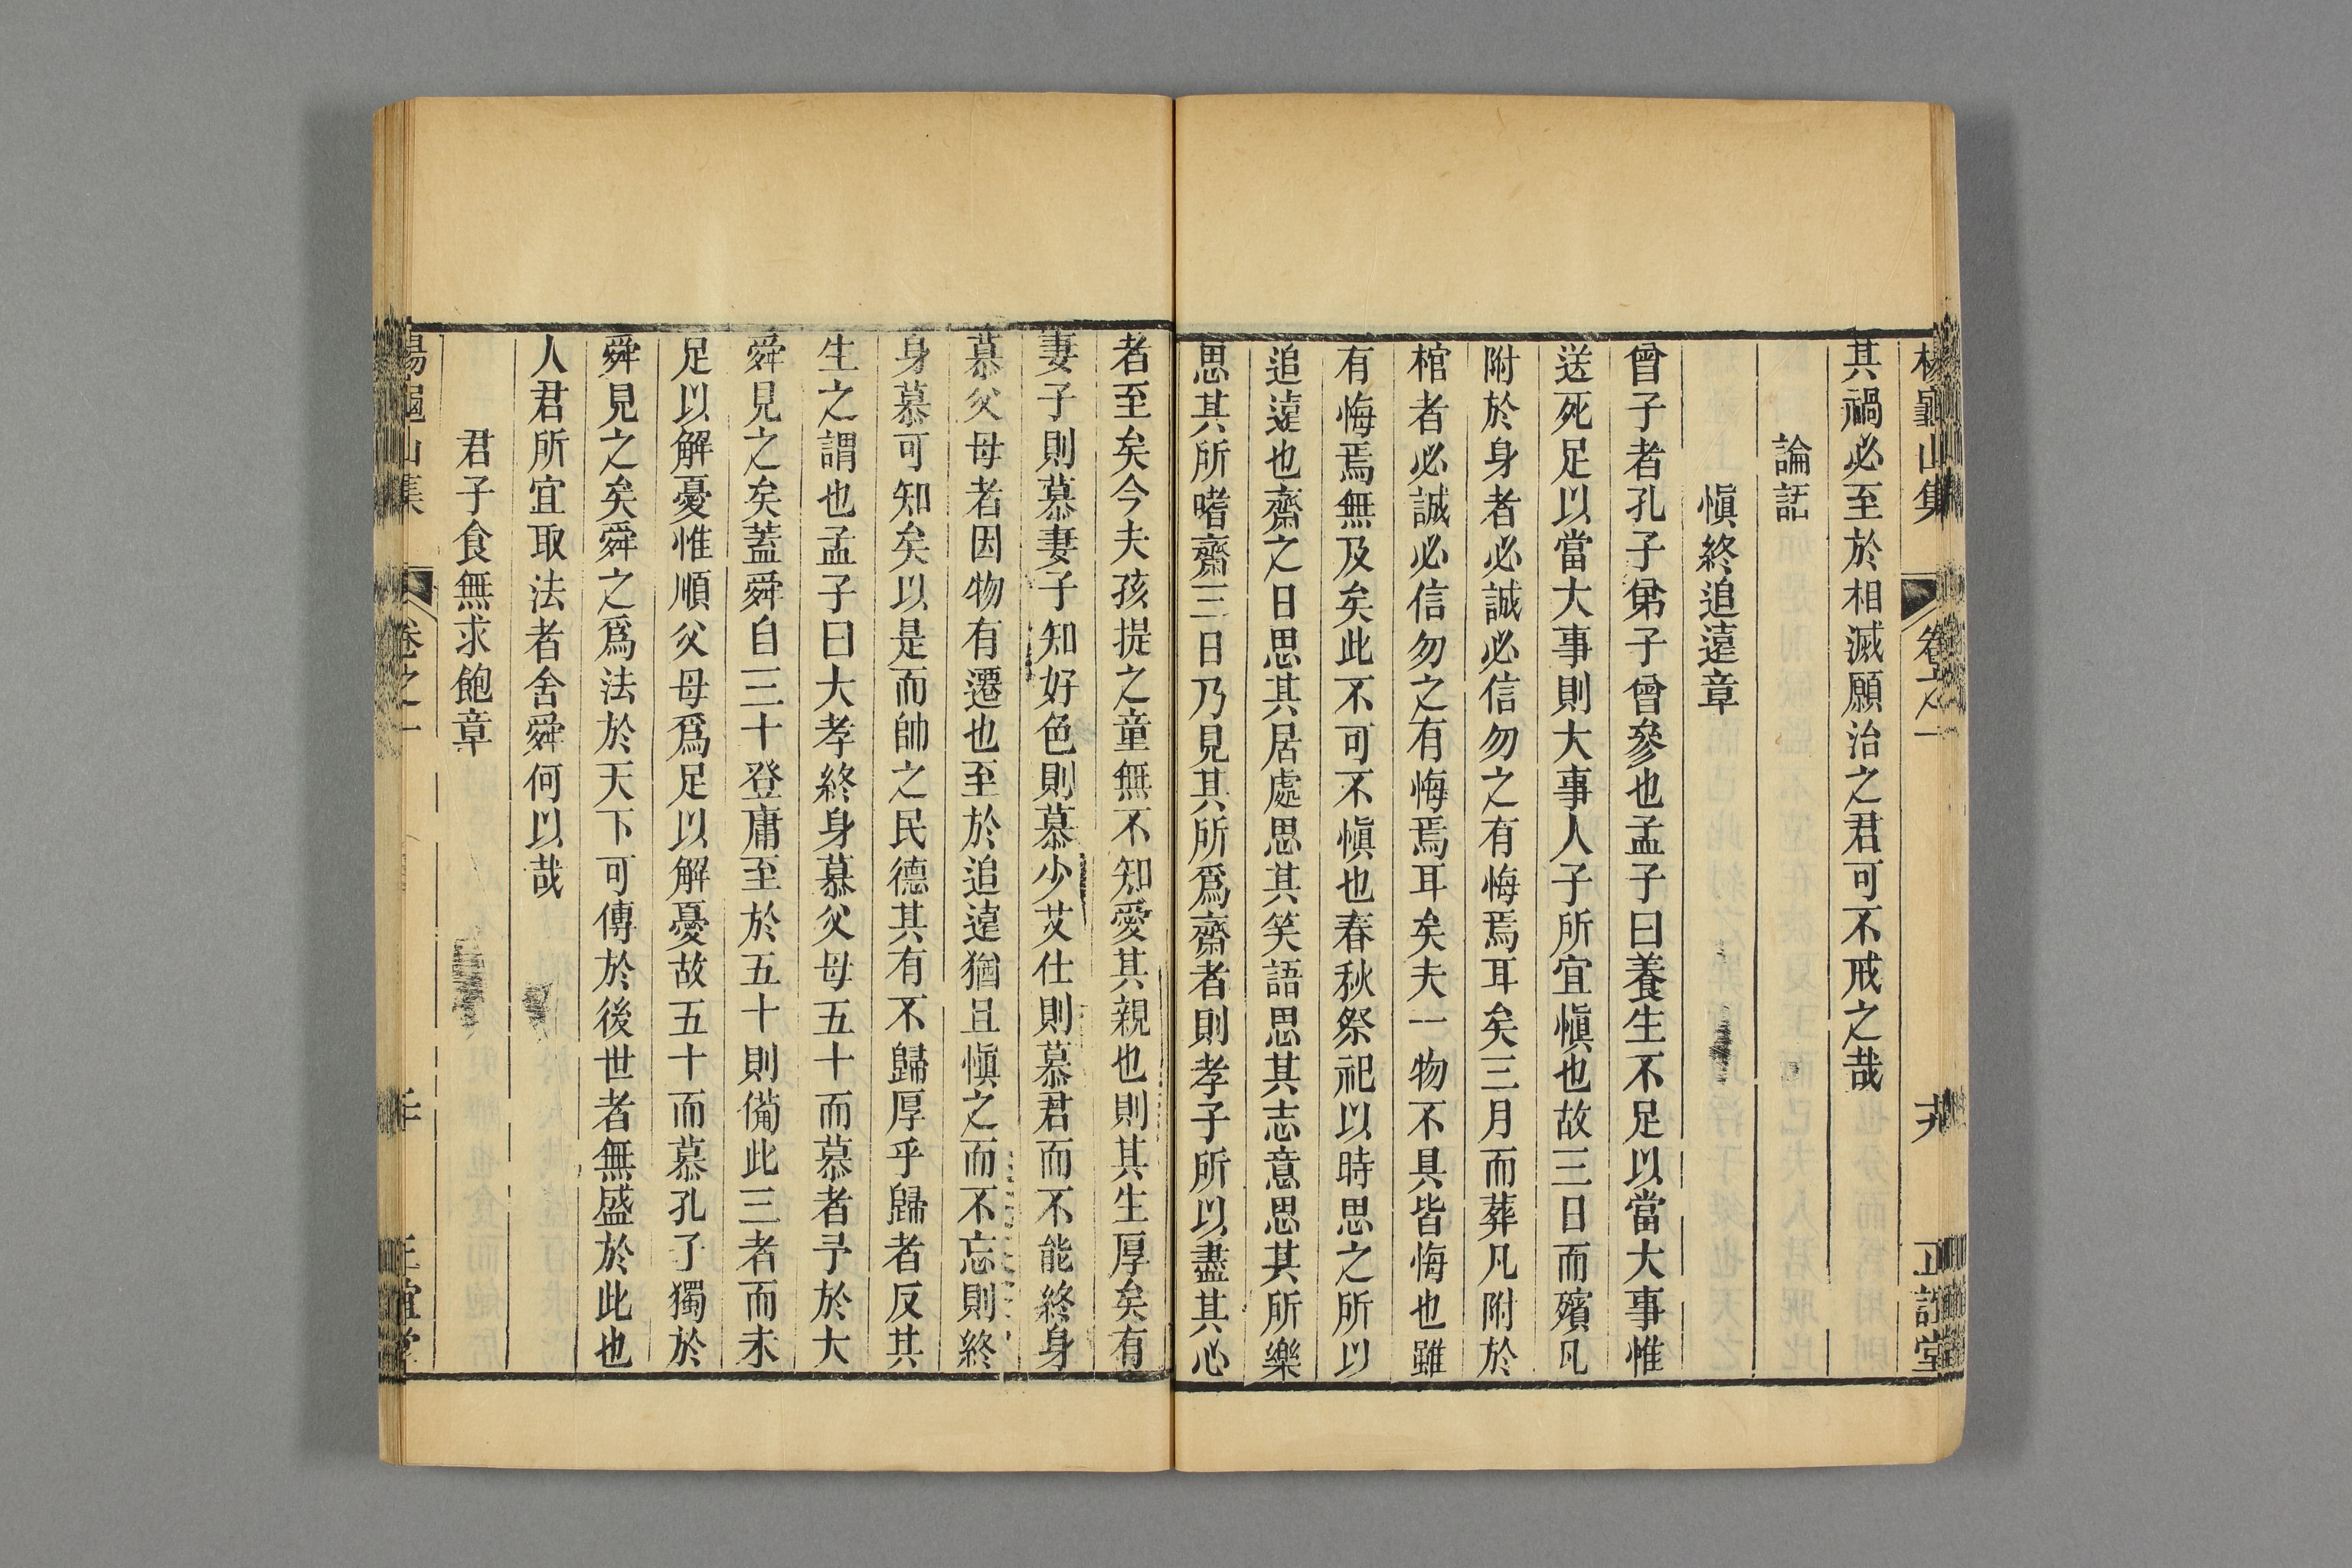 楊龜山集 卷之一 正誼堂
其禍必至於相滅願治之君可不戒之哉
論語
慎終追遠章
曾子者孔子弟子曾參也孟子曰養生不足以當大事惟
送死足以當大事則大事人子所宜慎也故三日而殯凡
附於身者必誠必信勿之有悔焉耳矣三月而葬凡附於
棺者必誠必信勿之有悔焉耳矣夫一物不具皆悔也雖
有悔焉無及矣此不可不慎也春秋祭祀以時思之所以
追遠也齋之日思其居處思其笑語思其志意思其所樂
思其所嗜齋三日乃見其所爲齋者則孝子所以盡其心
者至矣今夫孩提之童無不知愛其親也則其生厚矣有
妻子則慕妻子知好色則慕少艾仕則慕君而不能終身
慕父母者因物有遷也至於追遠猶且慎之而不忘則終
身慕可知矣以是而帥之民德其有不歸厚乎歸者反其
生之謂也孟子曰大孝終身慕父母五十而慕者予於大
舜見之矣蓋舜自三十登庸至於五十則備此三者而未
足以解憂惟順父母爲足以解憂故五十而慕孔子獨於
舜見之矣舜之爲法於天下可傳於後世者無盛於此也
人君所宜取法者舍舜何以哉
君子食無求飽章
楊龜山集 卷之一 正誼堂